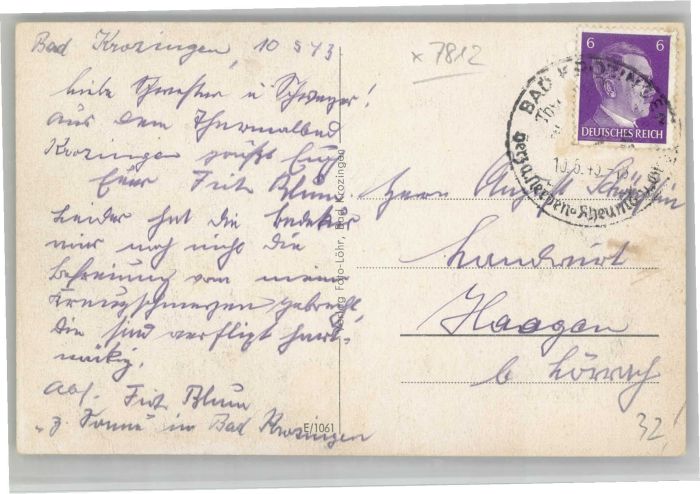 Bad Krozingen, 10 5 43
Liebe Schwester u Schwager!
aus dem Thermalbad
Krozingen grüßt Euch
Euer Fritz Blum.
Leider hat die Badekur
mir noch nicht die
Befreiung von meinen
Kreuzschmerzen gebracht
Die sind verflixt hart-
näckig.
Abs. Fritz Blum
"z. Sonne" in Bad Krozingen
E/1061
Verlag Foto-Löhr, Bad Krozingen
x 7812
6 6
DEUTSCHES REICH
BAD KROZINGEN
10.5.43
Herz u. Nerven-Rheuma
Herrn August
Landwirt
Haagen
b Lörrach
32